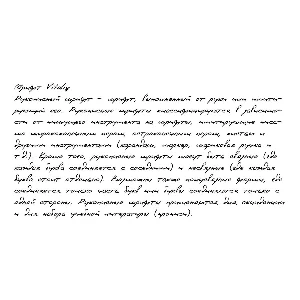 Шрифт Vitaliy
Рукописный шрифт - шрифт, выполненный от руки или имити-
рующий его. Рукописные шрифты классифицируются в зависимос-
ти от пишущего инструмента на шрифты, имитирующие пись-
мо ширококонечным пером, остроконечным пером, кистью и
другими инструментами (карандаш, маркер, шариковая ручка и
т.д.). Кроме того, рукописные шрифты могут быть связные (где
каждая буква соединяется с соседними) и несвязные (где каждая
буква стоит отдельно). Возможны также полусвязные формы, где
соединяются только часть букв или буквы соединяются только с
одной стороны. Рукописные шрифты применяются для акцидентных
и для набора учебной литературы (прописи).